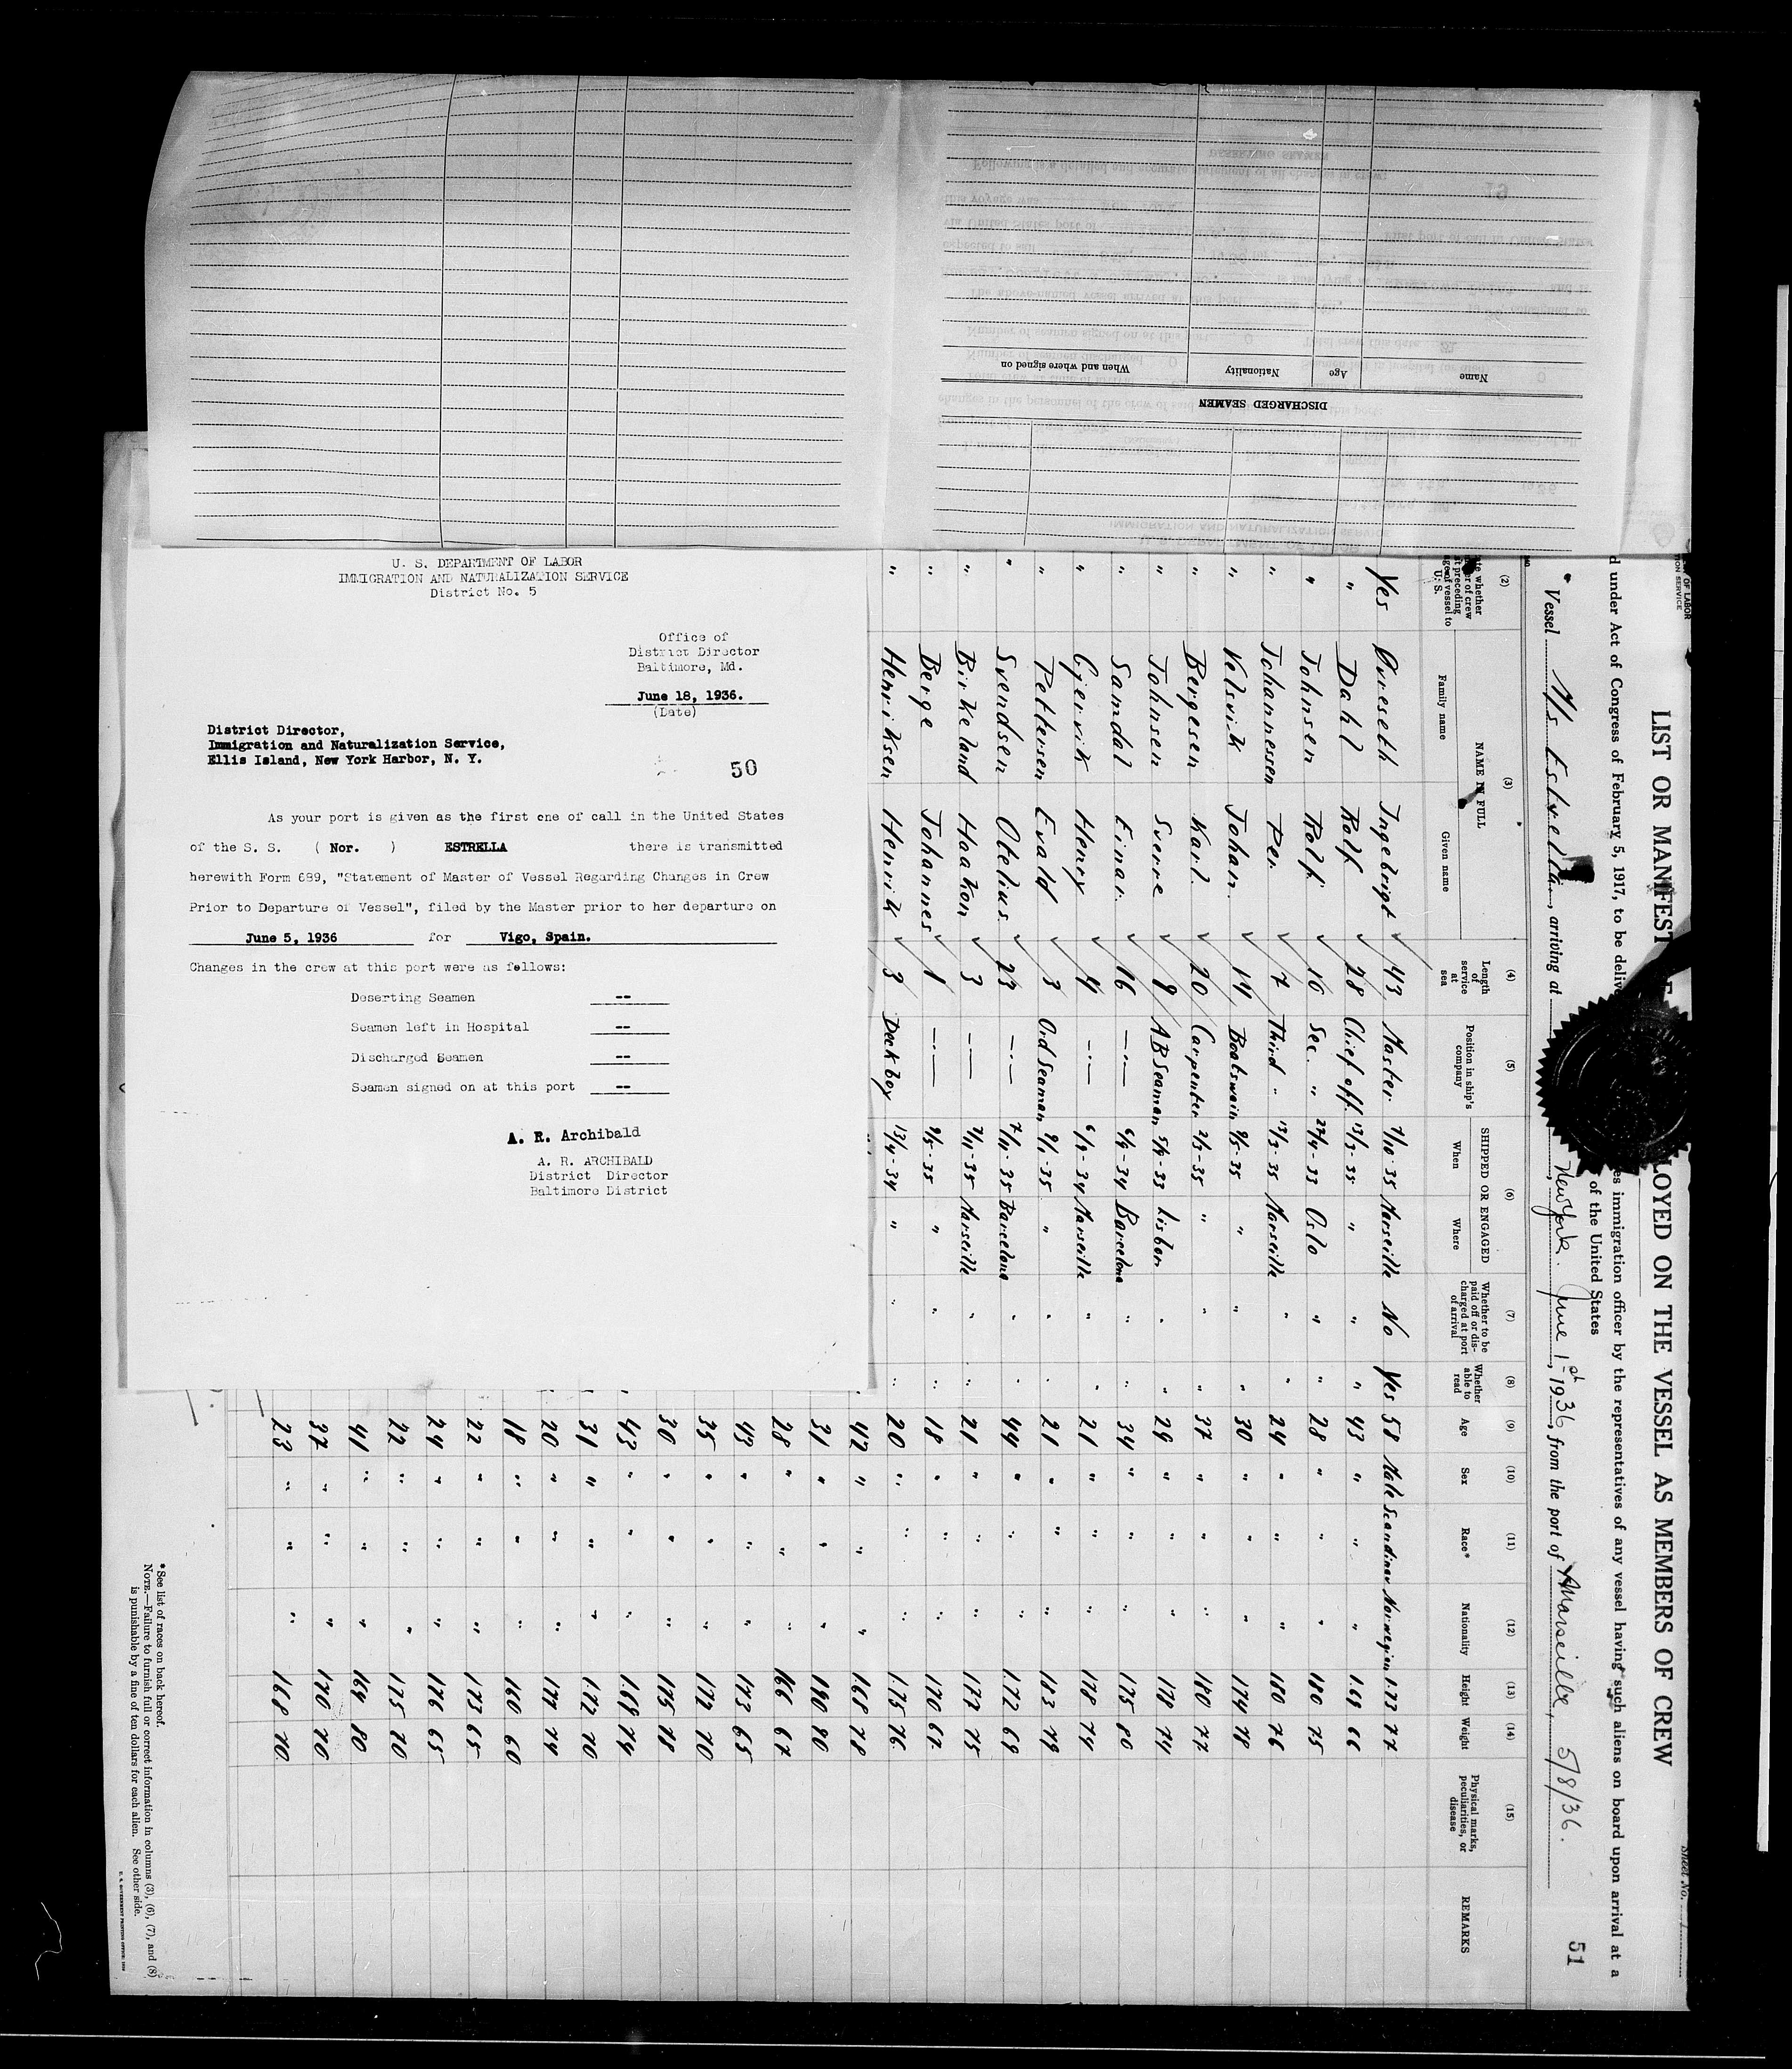 U. S. DEPARTMENT OF LABOR
IMMIGRATION AND NATURALIZATION SERVICE
District No. 5
Office of
District Director
Baltimore, Md.
June 18, 1936.
(Date)
District Director,
Immigration and Naturalization Service,
Ellis Island, New York Harbor, N. Y.
50
As your port is given as the first one of call in the United States
of the S. S. ( Nor. ) ESTRELLA there is transmitted
herewith Form 689, "Statement of Master of Vessel Regarding Changes in Crew
Prior to Departure of Vessel", filed by the Master prior to her departure on
June 5, 1936 for Vigo, Spain.
Changes in the crew at this port were as follows:
Deserting Seamen --
Seamen left in Hospital --
Discharged Seamen --
Seamen signed on at this port --
A. R. Archibald
A. R. ARCHIBALD
District Director
Baltimore District
DISCHARGED SEAMEN
Name Age Nationality When and where signed on
LIST OR MANIFEST LOYED ON THE VESSEL AS MEMBERS OF CREW
d under Act of Congress of February 5, 1917, to be delive es immigration officer by the representatives of any vessel having such aliens on board upon arrival at a
of the United States
Vessel M/s Estrella, arriving at New York. June 1st 1936, from the port of Marseille, 5/8/36.
51
(2) (3) (4) (5) (6) (7) (8) (9) (10) (11) (12) (13) (14) (15)
NAME IN FULL
Family name Given name
Length of service at sea
Position in ship's company
SHIPPED OR ENGAGED
When Where
Whether to be paid off or discharged at port of arrival
Whether able to read
Age Sex Race* Nationality Height Weight
Physical marks, peculiarities, or disease
REMARKS
Yes Øvreseth Ingebrigt 43 Master 7/10-35 Marseille No Yes 58 Male Scandinav Norwegian 1.73 77
" Dahl Rolf 28 Chief off. 13/3-35 " " " 43 " " " 1.68 66
" Johnsen Rolf. 16 Sec. " 22/4-33 Oslo " " 28 " " " 180 75
" Johannessen Per. 7 Third " 13/3-35 Marseille " " 24 " " " 180 76
" Velsvik Johan. 14 Boatswain 9/5-35 " " " 30 " " " 174 78
" Bergesen Karl. 20 Carpenter 2/3-35 " " " 37 " " " 180 77
" Johnsen Sverre 9 AB Seaman 5/9-33 Lisbon " " 29 " " " 178 74
" Samdal Einar. 16 —·— 6/9-34 Barcelona " " 34 " " " 175 80
" Gjervik Henry 4 —·— 6/9-34 Marseille " " 21 " " " 178 74
" Pettersen Evald 3 Ord Seaman 9/1-35 " " " 21 " " " 183 79
" Svendsen Obelius. 23 —·— 7/11-35 Barcelona " " 44 " " " 172 69
" Birkeland Haakon 3 —·— 7/11-35 Marseille " " 21 " " " 177 75
" Berge Johannes 1 —·— 9/5-35 " " " 18 " " " 170 67.
" Henriksen Henrik 3 Deck boy 13/4-34 " " " 20 " " " 1.75 76.
42 " " " 168 78
31 " " " 190 80
28 " " " 166 67
43 " " " 173 65
35 " " " 172 70
30 " " " 175 78
43 " " " 1.68 74
31 " " " 1.72 70
20 " " " 177 74
18 " " " 160 60
22 " " " 173 65
24 " " " 176 65
22 " " " 175 70
41 " " " 164 80
37 " " " 170 70
23 " " " 168 70
*See list of races on back hereof.
NOTE.—Failure to furnish full or correct information in columns (3), (6), (7), and (8)
is punishable by a fine of ten dollars for each alien. See other side.